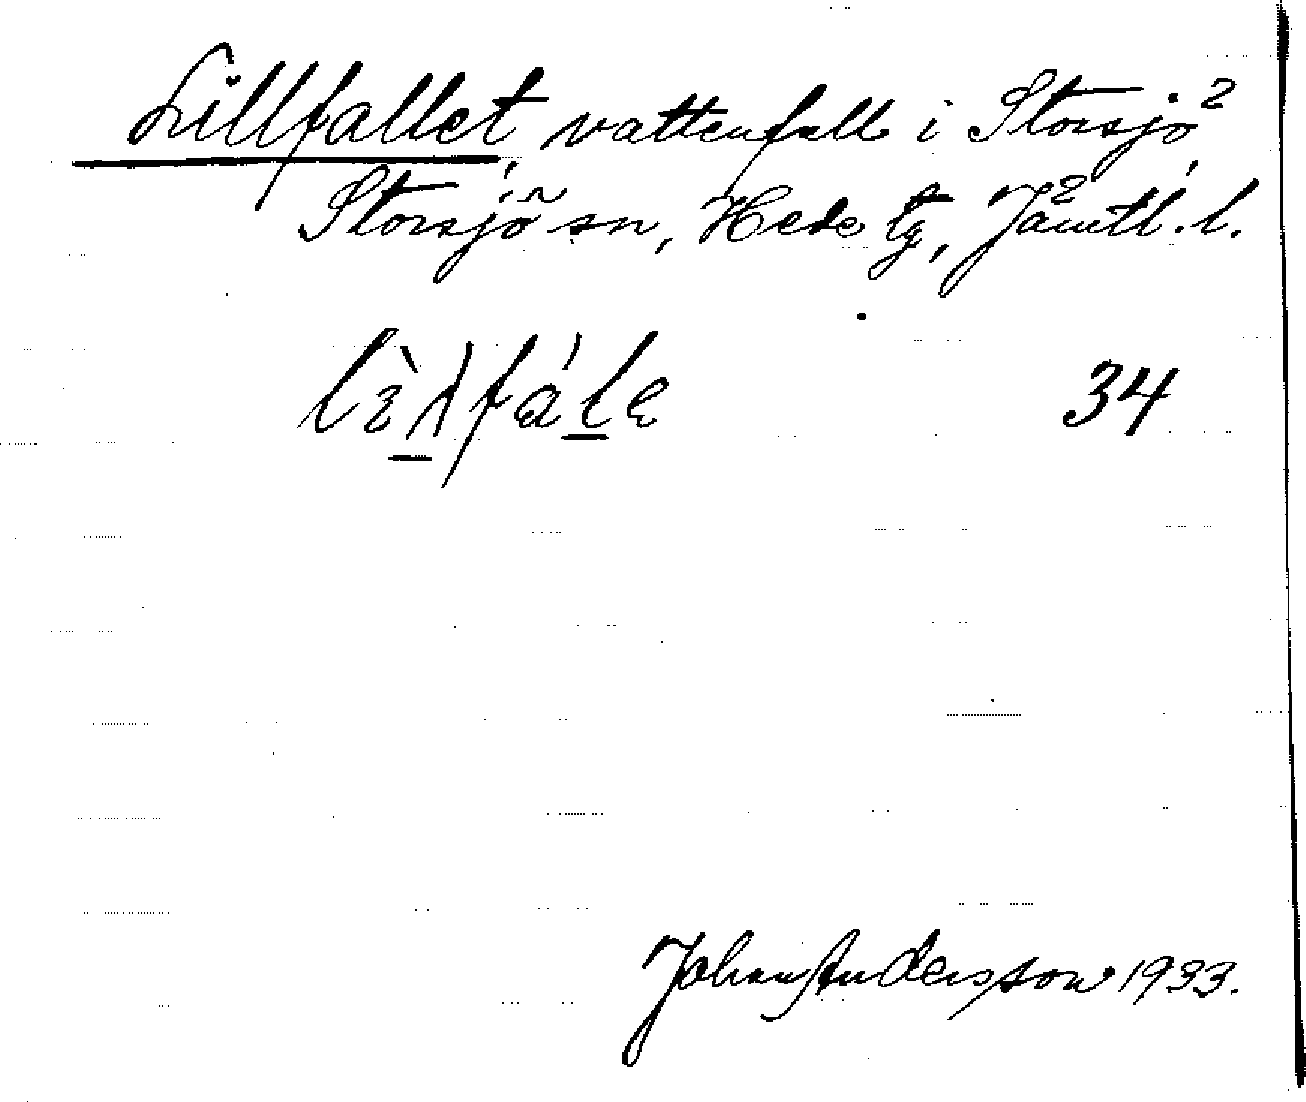 Lillfallet, vattenfall i Storsjö²
Storsjö sn, Hede tg, Jämtl. l.
34
Johan Andersson 1933.